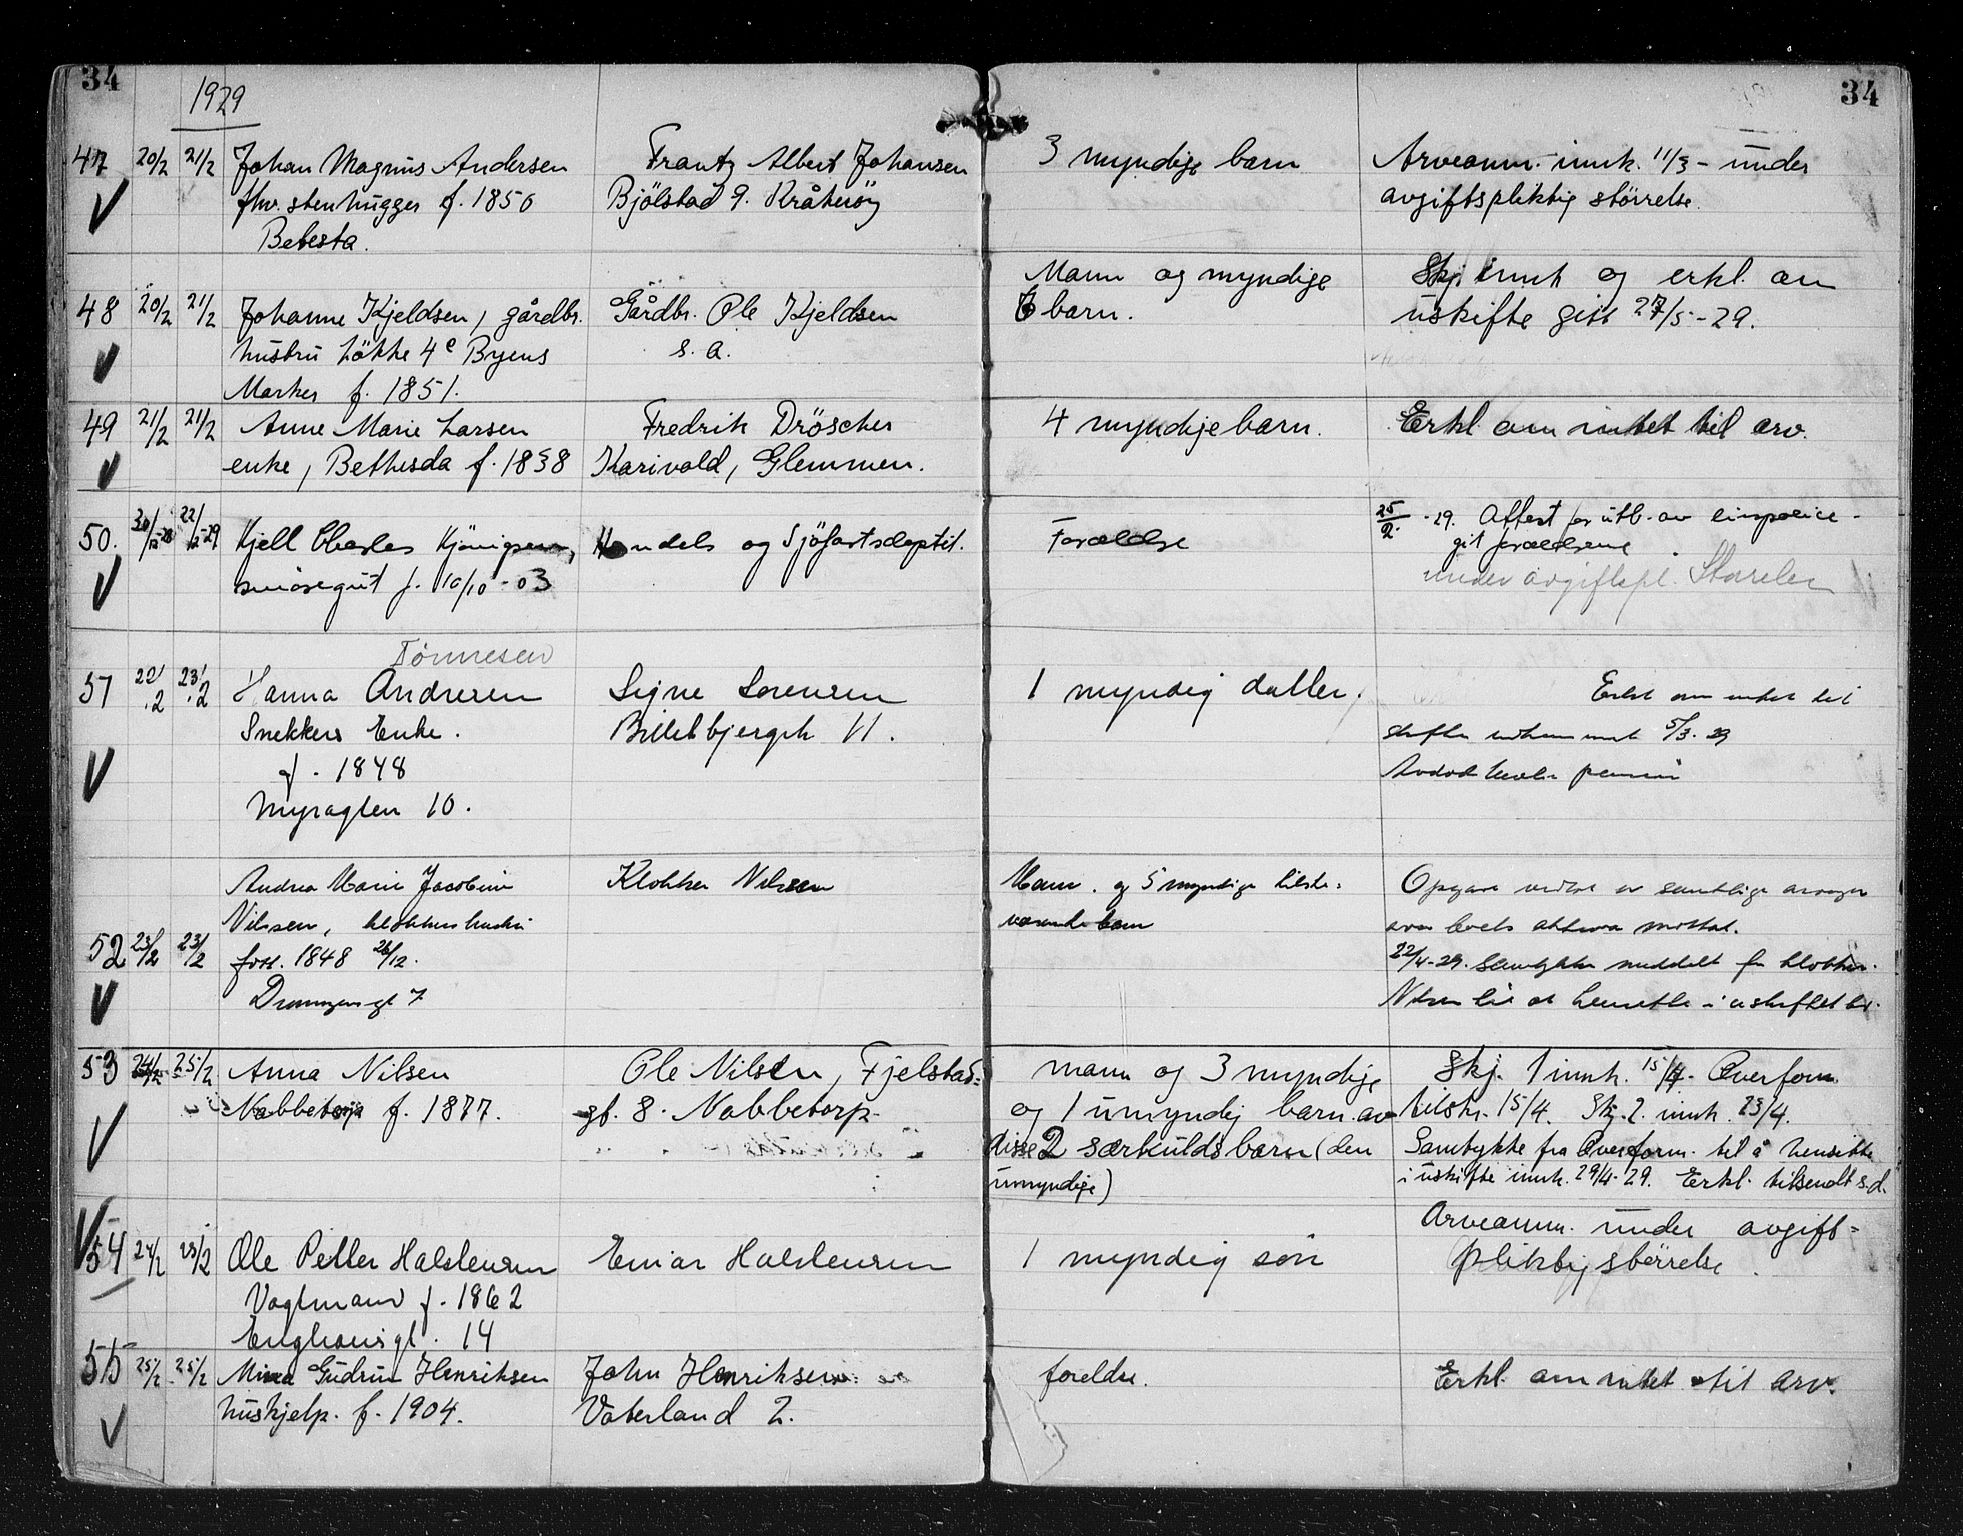 34
1929
34
47 20/2 21/2 Johan Magnus Andersen Frantz Albert Johansen 3 myndige barn Arveanm. innk. 11/3 - under
fhv. stenhugger f. 1850 Bjölstad 9. Kråkeröy avgiftspliktig störrelse.
Betesta.
Mann og myndige Skj. innk og erkl. om
48 20/2 21/2 Johanne Kjeldsen, gårdbr. Gårdbr. Ole Kjeldsen 6 barn. uskifte gitt 27/5-29.
hustru Lökke 4e Byens s. a.
Marker f. 1851.
49 21/2 21/2 Anne Marie Larsen Fredrik Dröscher 4 myndige barn. Erkl om intet til arv.
enke, Bethesda f. 1838 Karivold, Glemmen.
25/2 -29. Attest for utb. av
50. 22/2-29 Kjell Charles Handels og Sjöfartsdeptet. Foreldre git foreldrene
f. 10/10-03 under avgiftspl. Störrelse
Tönnesen
51 22/2 23/2 Hanna Andresen Signe Sorensen 1 myndig datter. Erkl om intet til
Snekkers Enke. skifte innkommet 5/3.29
f. 1848
Nygaten 10.
Andrea Marie Jacobine Klokker Nilssen Mann. og 5 myndige tilste-
Nilssen, klokkers hustru værende barn
52 23/2 23/2 föd. 1848 26/12. 22/4-29. Samtykke meddelt for klokker
Dronningensgt 7 Nilsen til at hensitte i uskiftet bo.
53 24/2 25/2 Anna Nilsen Ole Nilsen, Fjelstad- mann og 3 myndige Skj. 1 innk. 15/4. Overform.
Nabbetorp f. 1877. gt. 8. Nabbetorp og 1 umyndig barn. av tilskr. 15/4. Skj. 2. innk. 23/4.
disse 2 særkuldsbarn (den Samtykke fra Overform. til å hensitte
umyndige) i uskifte innk. 29/4-29. Erkl. tilsendt s.d.
Arveanm. under avgift-
54 24/2 25/2 Ole Petter Halstensen Einar Halstensen 1 myndig sön pliktig störrelse.
Vagtmand f. 1862
Enghausgt. 14
55 25/2 25/2 Minna Gudrun Henriksen John Henriksen foreldre. Erkl. om intet til arv.
hushjelp. f. 1904. Vaterland 2.